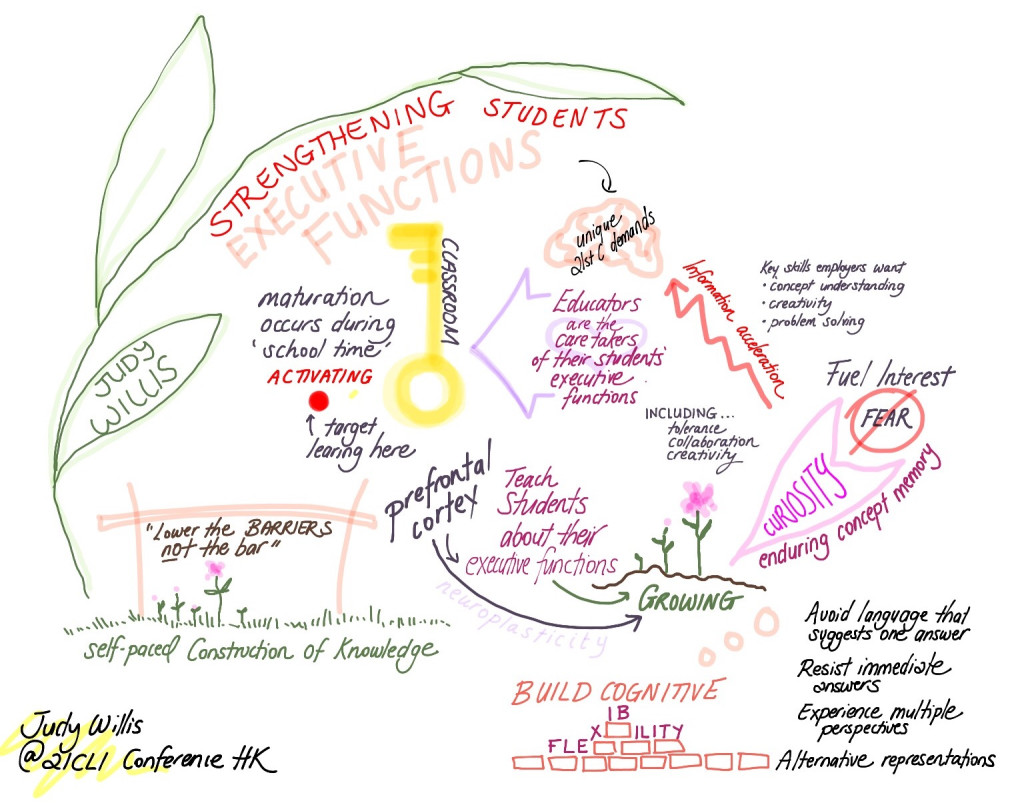 STRENGTHENING STUDENTS
EXECUTIVE
FUNCTIONS
JUDY
WILLIS
CLASSROOM
maturation
occurs during
'school time'
ACTIVATING
↑ target
learing here
unique
21st C demands
Educators
are the
care takers
of their students'
executive
functions
Information acceleration
Key skills employers want
• concept understanding
• creativity
• problem solving
Fuel Interest
FEAR
CURIOSITY
enduring concept memory
INCLUDING...
tolerance
collaboration
creativity
prefrontal
cortex
Teach
Students
about their
executive functions
neuroplasticity
GROWING
"Lower the BARRIERS
not the bar"
self-paced Construction of Knowledge
BUILD COGNITIVE
FLEXIBILITY
Avoid language that
suggests one answer
Resist immediate
answers
Experience multiple
perspectives
Alternative representations
Judy Willis
@21CLI Conference HK